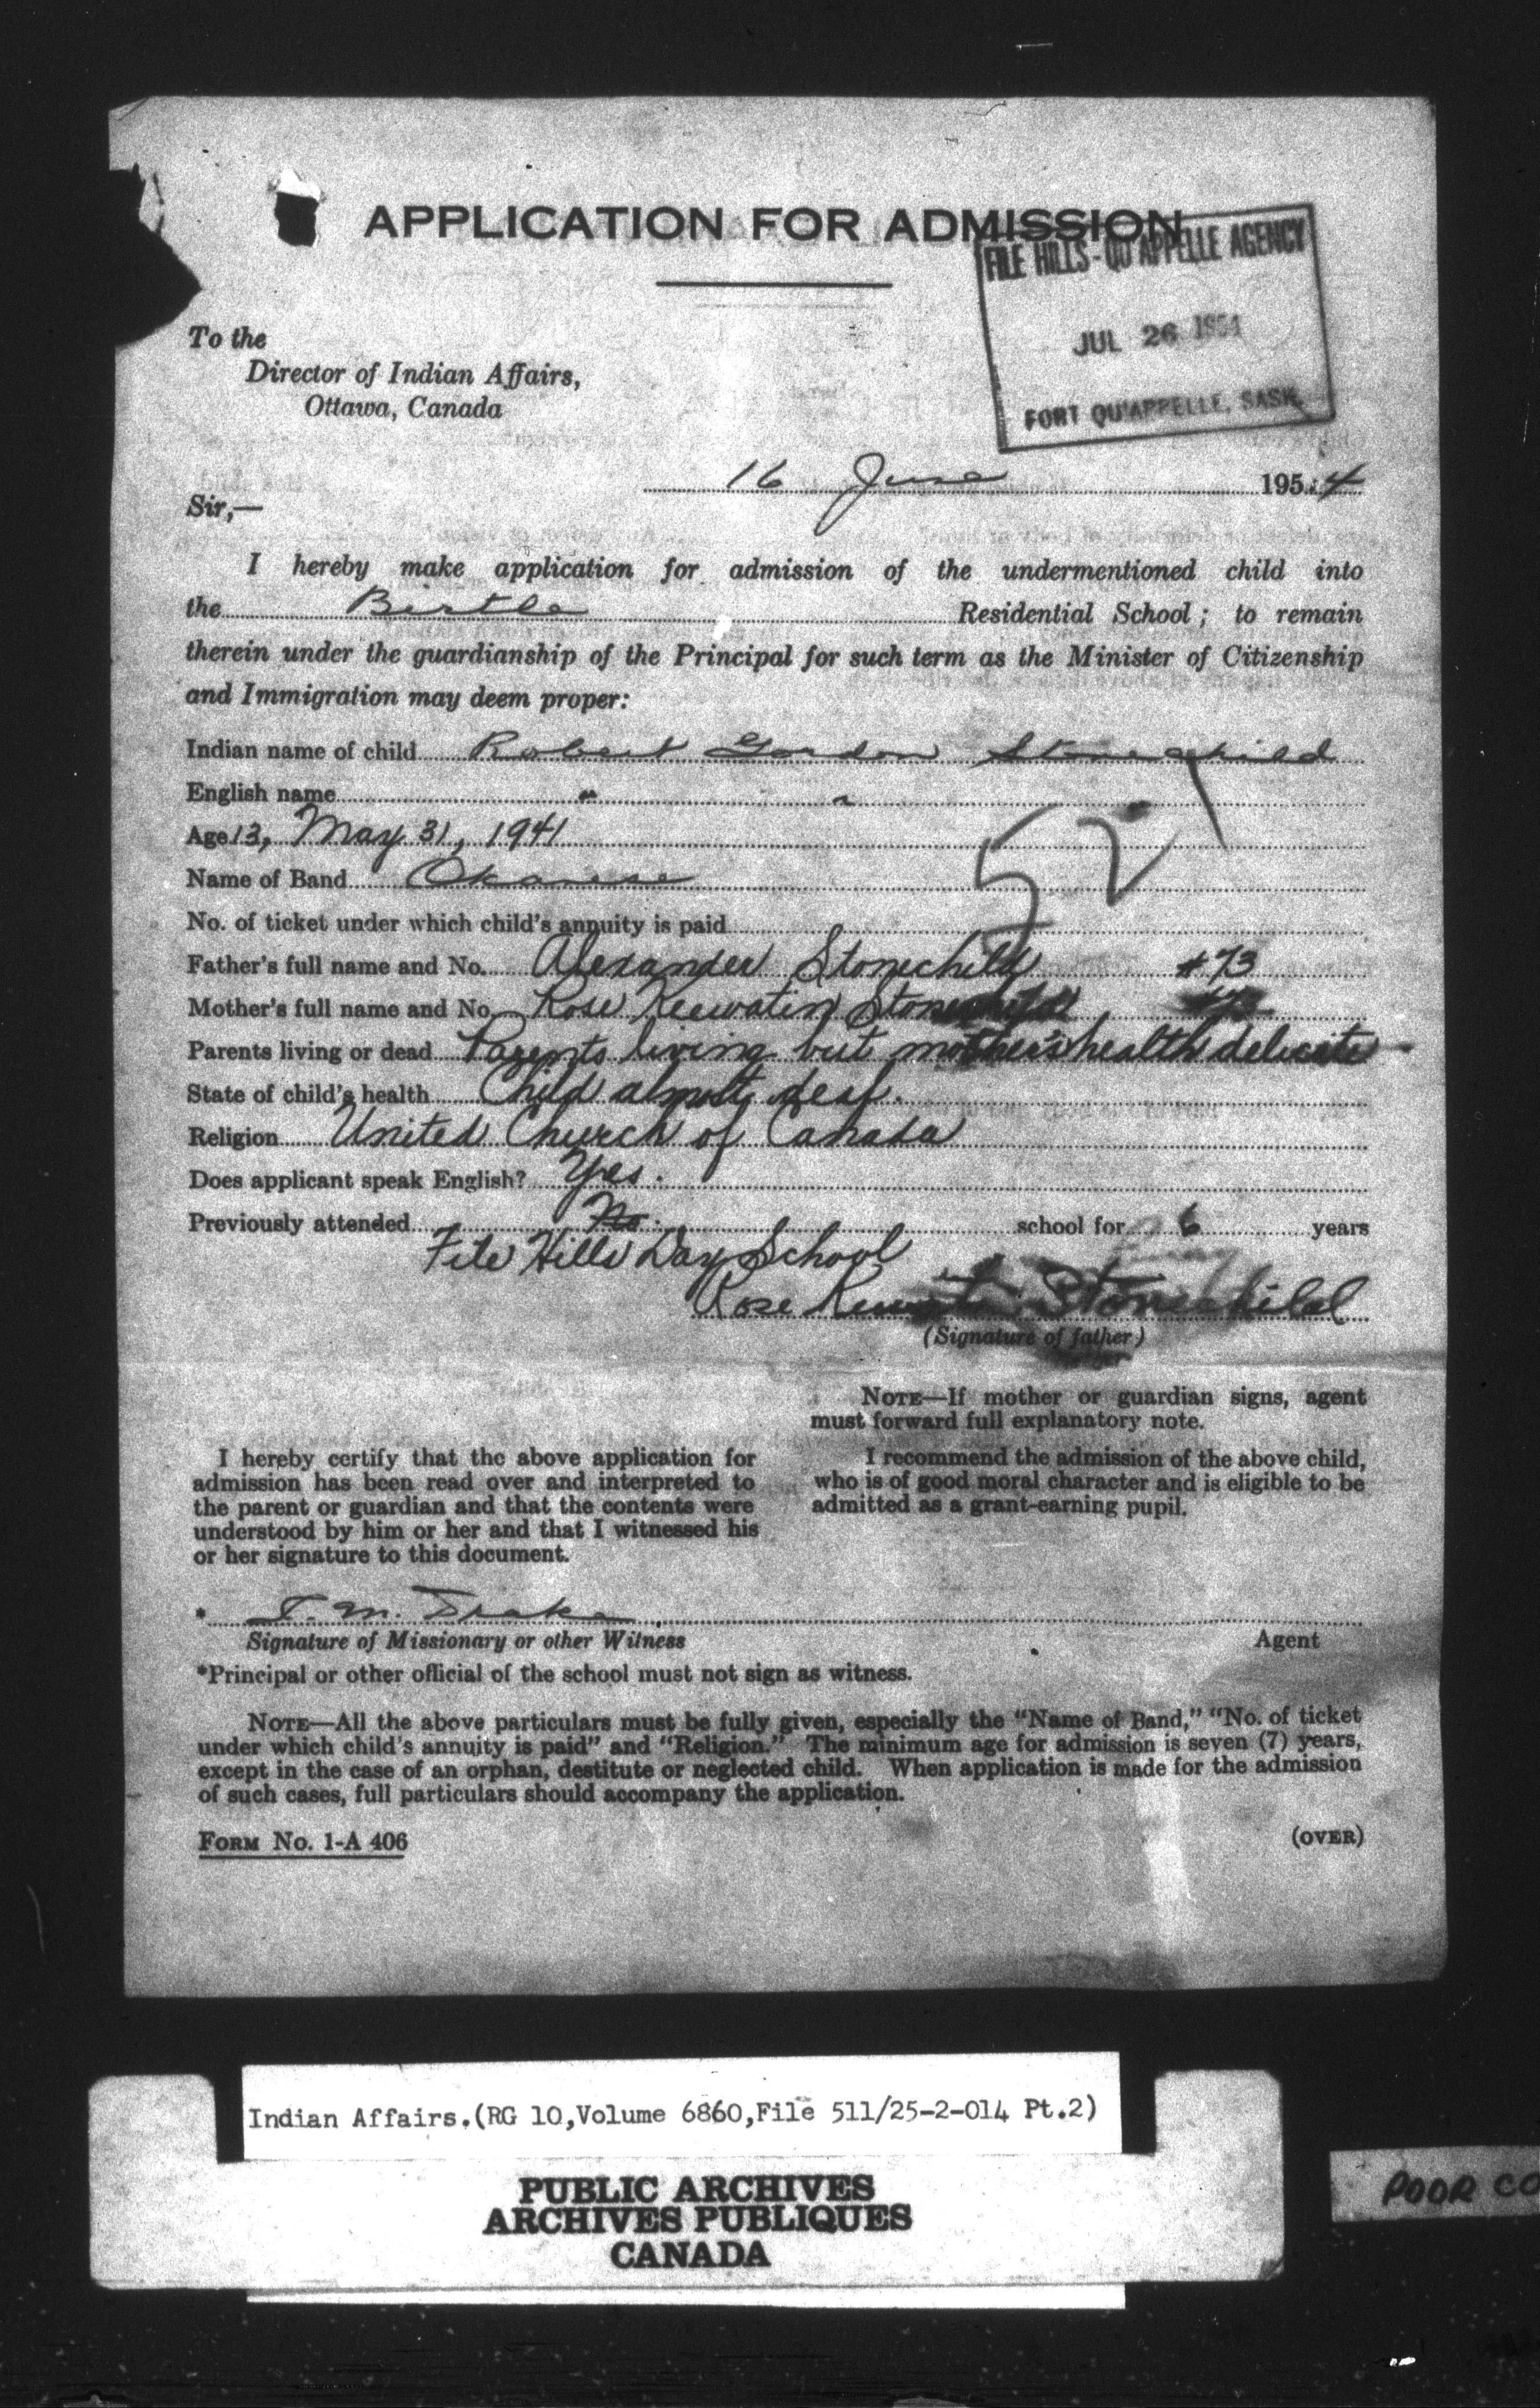 APPLICATION FOR ADMISSION
FILE HILLS-QU'APPELLE AGENCY
JUL 26 1954
FORT QU'APPELLE, SASK.
To the
Director of Indian Affairs,
Ottawa, Canada
16 June 1954
Sir,—
I hereby make application for admission of the undermentioned child into
the Birtle Residential School; to remain
therein under the guardianship of the Principal for such term as the Minister of Citizenship
and Immigration may deem proper:
Indian name of child Robert Gordon Stonechild
English name " "
Age 13, May 31, 1941
Name of Band Okanese
52
No. of ticket under which child's annuity is paid
Father's full name and No. Alexander Stonechild #73
Mother's full name and No. Rose Keewatin Stonechild
Parents living or dead Parents living but mother's health delicate
State of child's health Child almost deaf.
Religion United Church of Canada
Does applicant speak English? Yes.
Previously attended No. school for 6 years
File Hills Day School
Rose Keewatin Stonechild
(Signature of father)
NOTE—If mother or guardian signs, agent
must forward full explanatory note.
I hereby certify that the above application for
admission has been read over and interpreted to
the parent or guardian and that the contents were
understood by him or her and that I witnessed his
or her signature to this document.
I recommend the admission of the above child,
who is of good moral character and is eligible to be
admitted as a grant-earning pupil.
* M. Drake
Signature of Missionary or other Witness
Agent
*Principal or other official of the school must not sign as witness.
NOTE—All the above particulars must be fully given, especially the "Name of Band," "No. of ticket
under which child's annuity is paid" and "Religion." The minimum age for admission is seven (7) years,
except in the case of an orphan, destitute or neglected child. When application is made for the admission
of such cases, full particulars should accompany the application.
FORM No. 1-A 406
(OVER)
Indian Affairs.(RG 10,Volume 6860,File 511/25-2-014 Pt.2)
PUBLIC ARCHIVES
ARCHIVES PUBLIQUES
CANADA
POOR CO